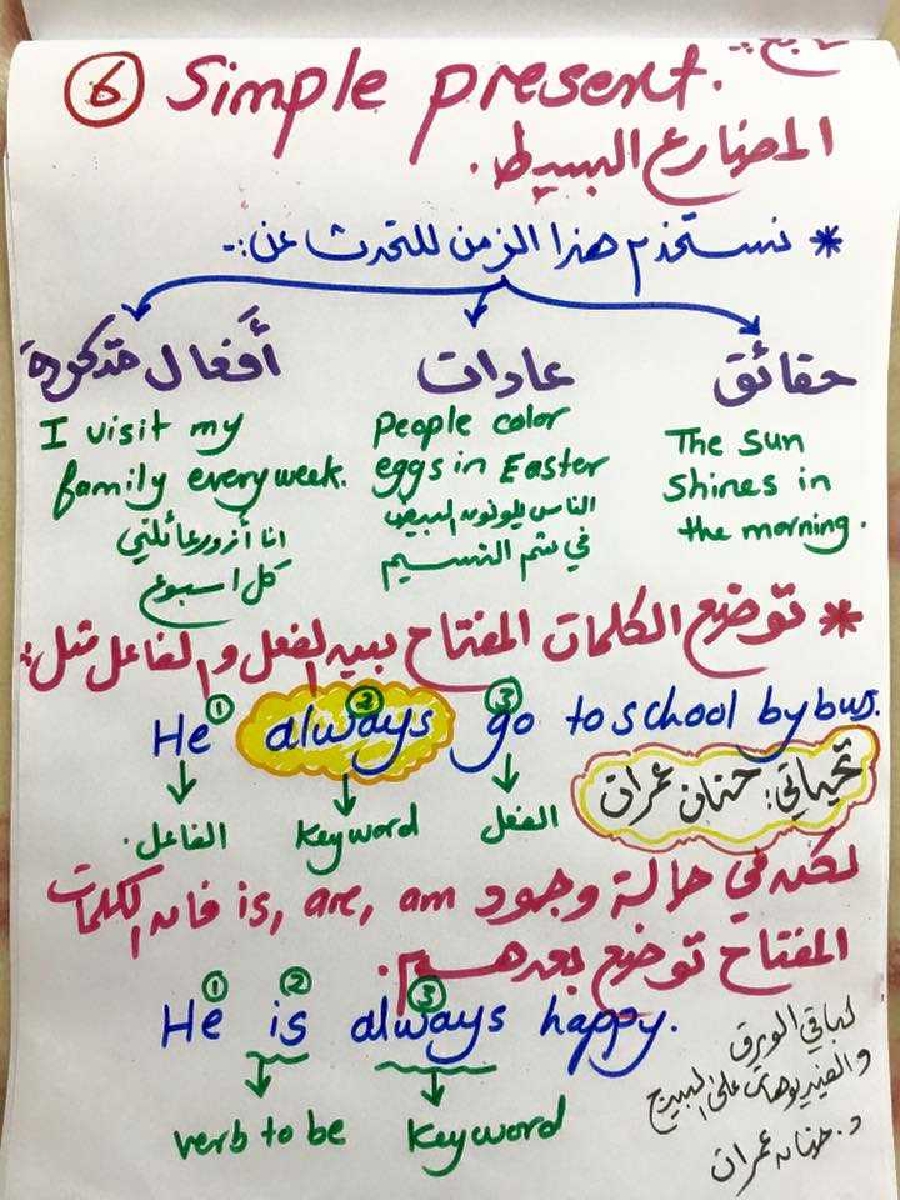 تابع :-
6 Simple present.
المضارع البسيط.
* نستخدم هذا الزمن للتحدث عن :-
حقائق
The sun
shines in
the morning.
عادات
People color
eggs in Easter
الناس يلونون البيض
في شم النسيم
أفعال متكررة
I visit my
family every week.
انا أزور عائلتي
كل اسبوع
* توضع الكلمات المفتاح بين الفعل والفاعل مثل:
1 2 3
He always go to school by bus.
الفاعل keyword الفعل
تحياتي: حنان عمران
لكن في حالة وجود is, are, am فان الكلمات
المفتاح توضع بعدهم.
1 2 3
He is always happy.
verb to be keyword
لباقي الورق
والفيديوهات على البيدج
د. حنان عمران